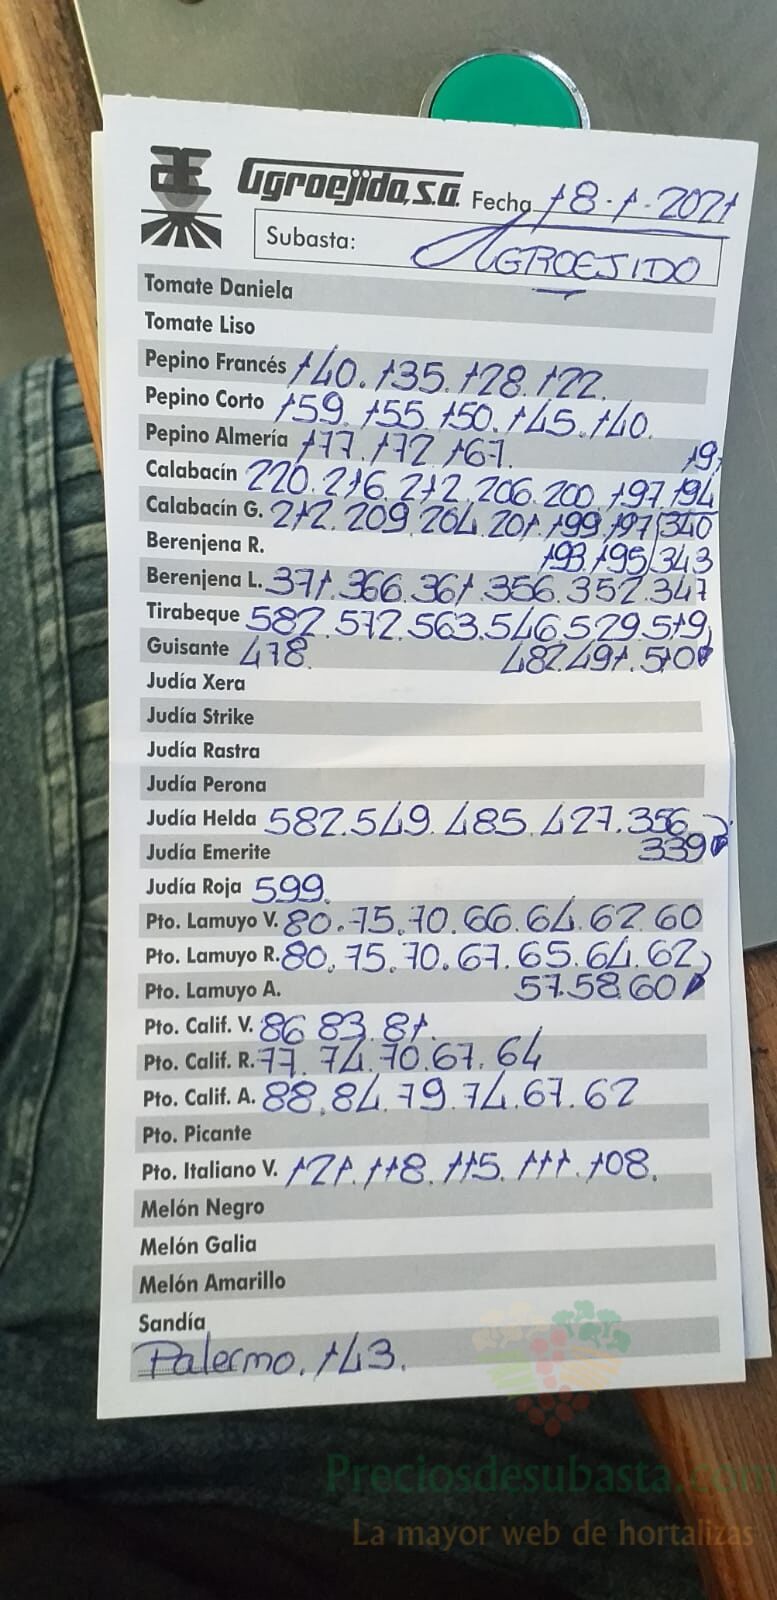 Agroejido, S.A. Fecha 18-1-2021
Subasta: AGROEJIDO
Tomate Daniela
Tomate Liso
Pepino Francés 140. 135. 128. 122.
Pepino Corto 159. 155. 150. 145. 140.
Pepino Almería 177. 172. 167. 191
Calabacín 220. 216. 212. 206. 200. 197. 194
Calabacín G. 212. 209. 204. 201. 199. 197 340
Berenjena R. 193. 195 343
Berenjena L. 371. 366. 361. 356. 352. 347
Tirabeque 582. 572. 563. 546. 529. 519
Guisante 478. 482. 491. 510
Judía Xera
Judía Strike
Judía Rastra
Judía Perona
Judía Helda 582. 549. 485. 427. 356
Judía Emerite 339
Judía Roja 599.
Pto. Lamuyo V. 80. 75. 70. 66. 64. 62. 60
Pto. Lamuyo R. 80. 75. 70. 67. 65. 64. 62
Pto. Lamuyo A. 57. 58. 60
Pto. Calif. V. 86 83. 81.
Pto. Calif. R. 77. 74. 70. 67. 64
Pto. Calif. A. 88. 84. 79. 74. 67. 62
Pto. Picante
Pto. Italiano V. 121. 118. 115. 111. 108.
Melón Negro
Melón Galia
Melón Amarillo
Sandía
Palermo. 143.
Preciosdesubasta.com
La mayor web de hortalizas